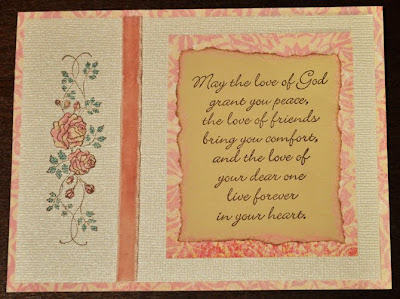 May the love of God
grant you peace,
the love of friends
bring you comfort,
and the love of
your dear one
live forever
in your heart.